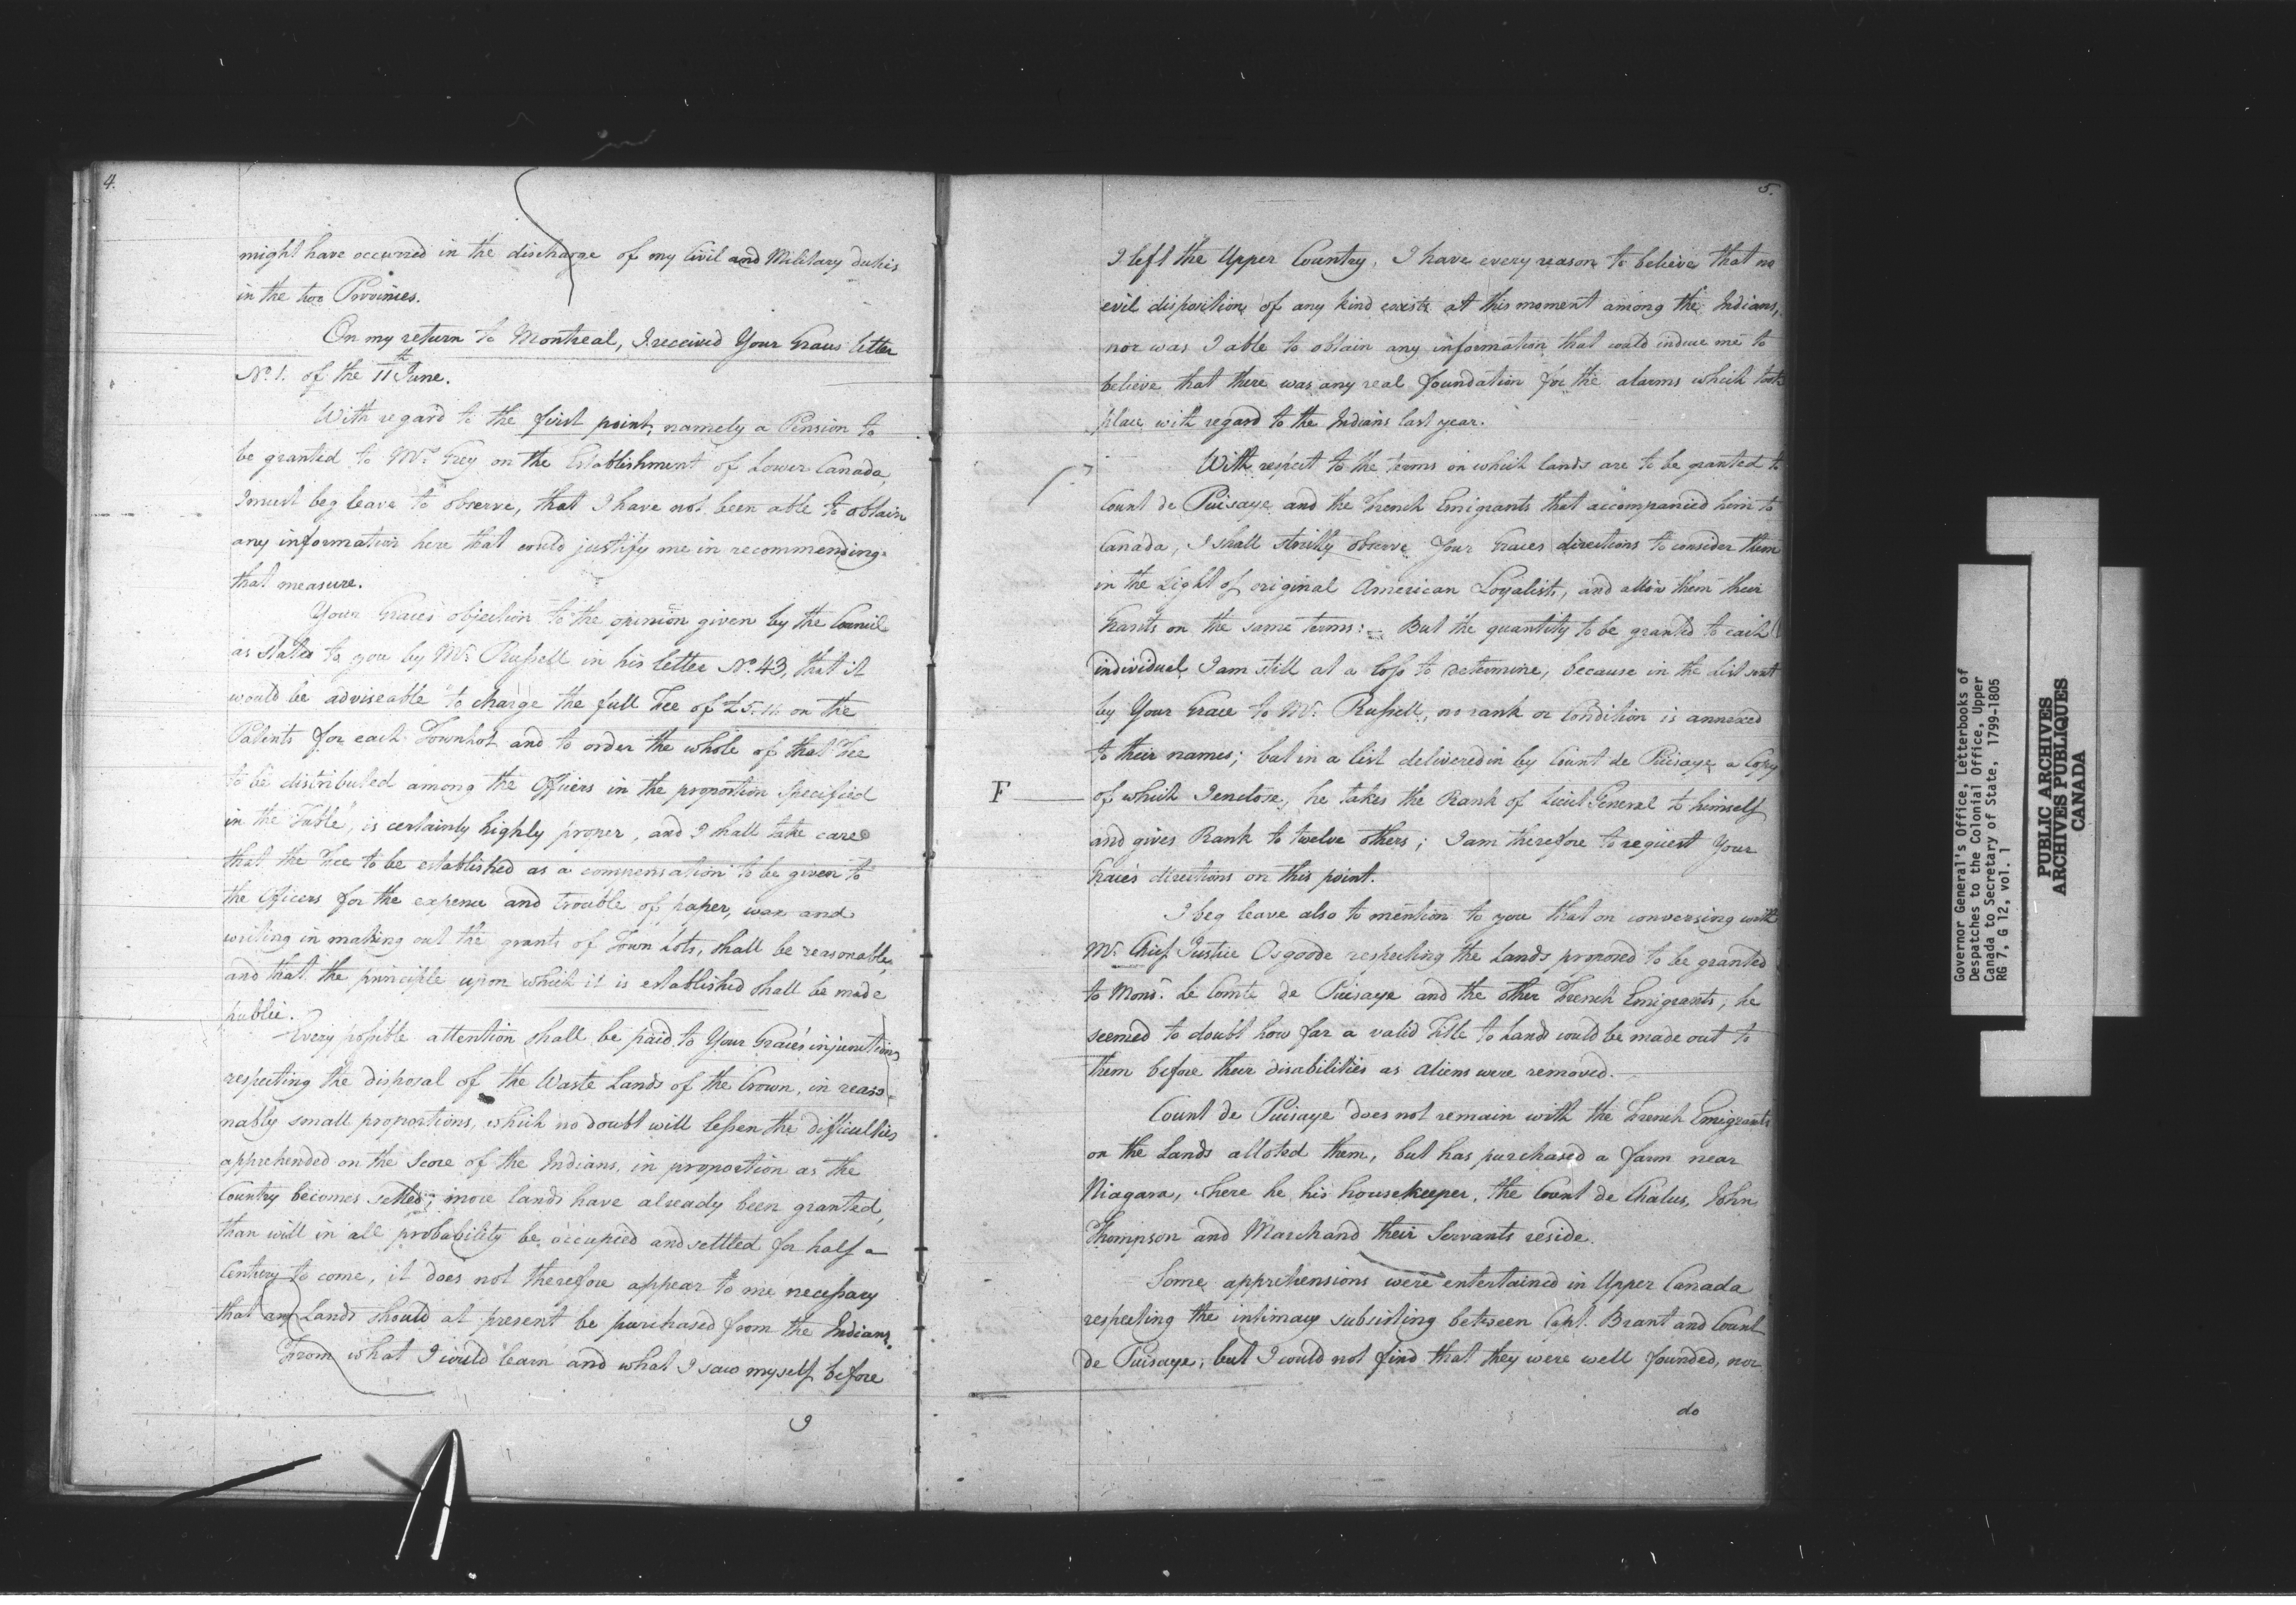 4.
might have occurred in the discharge of my Civil and Military duties
in the two Provinces.
On my return to Montreal, I received Your Graces letter
No. 1. of the 11th June.
With regard to the first point, namely a Pension to
be granted to Mrs. Grey on the Establishment of Lower Canada,
I must beg leave to observe, that I have not been able to obtain
any information here that could justify me in recommending
that measure.
Your Grace's objection to the opinion given by the Council
as stated to you by Mr. Russell in his letter No. 43, that it
would be adviseable "to charge the full Fee of £5.11. on the
Patents for each Town Lot and to order the whole of that Fee
to be distributed among the Officers in the proportion specified
in the Table", is certainly highly proper, and I shall take care
that the Fee to be established as a compensation to be given to
the Officers for the expence and trouble of paper, wax and
writing in making out the grants of Town Lots, shall be reasonable,
and that the principle upon which it is established shall be made
public.
Every possible attention shall be paid to Your Grace's injunctions
respecting the disposal of the Waste Lands of the Crown, in reaso-
nably small proportions, which no doubt will lessen the difficulties
apprehended on the Score of the Indians, in proportion as the
Country becomes settled; more lands have already been granted,
than will in all probability be occupied and settled for half a
Century to come, it does not therefore appear to me necessary
that any Lands should at present be purchased from the Indians.
From what I could learn and what I saw myself before
I
5.
I left the Upper Country, I have every reason to believe that no
evil disposition of any kind exists at this moment among the Indians,
nor was I able to obtain any information that could induce me to
believe that there was any real foundation for the alarms which took
place with regard to the Indians last year.
With respect to the terms on which lands are to be granted to
Count de Puisaye and the French Emigrants that accompanied him to
Canada, I shall strictly observe Your Graces directions to consider them
in the Light of original American Loyalists, and allow them their
Grants on the same terms: But the quantity to be granted to each
individuel I am still at a loss to determine, because in the List sent
by Your Grace to Mr. Russell, no rank or Condition is annexed
to their names; but in a list delivered in by Count de Puisaye a Copy
F of which I enclose, he takes the Rank of Lieut General to himself
and gives Rank to twelve others; I am therefore to request Your
Grace's directions on this point.
I beg leave also to mention to you that on conversing with
Mr. Chief Justice Osgoode respecting the Lands proposed to be granted
to Monsr. Le Comte de Puisaye and the other French Emigrants, he
seemed to doubt how far a valid Title to Lands could be made out to
them before their disabilities as aliens were removed.
Count de Puisaye does not remain with the French Emigrants
on the Lands alloted them, but has purchased a farm near
Niagara, where he his housekeeper, the Count de Chalus, John
Thompson and Marchand their Servants reside.
Some apprehensions were entertained in Upper Canada
respecting the intimacy subsisting between Capt. Brant and Count
de Puisaye, but I could not find that they were well founded, nor
do
Governor General's Office, Letterbooks of
Despatches to the Colonial Office, Upper
Canada to Secretary of State, 1799-1805
RG 7, G 12, vol. 1
PUBLIC ARCHIVES
ARCHIVES PUBLIQUES
CANADA